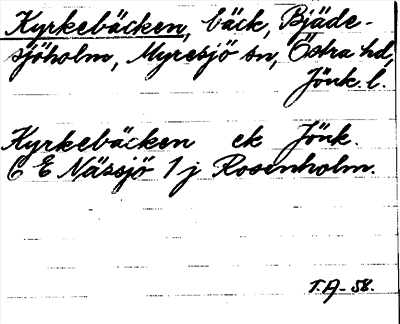 Kyrkebäcken, bäck, Bjäde-
sjöholm, Myresjö sn, Östra hd,
Jönk. l.
Kyrkebäcken ek Jönk.
6 E Nässjö 1 j Rosenholm.
T.A-58.